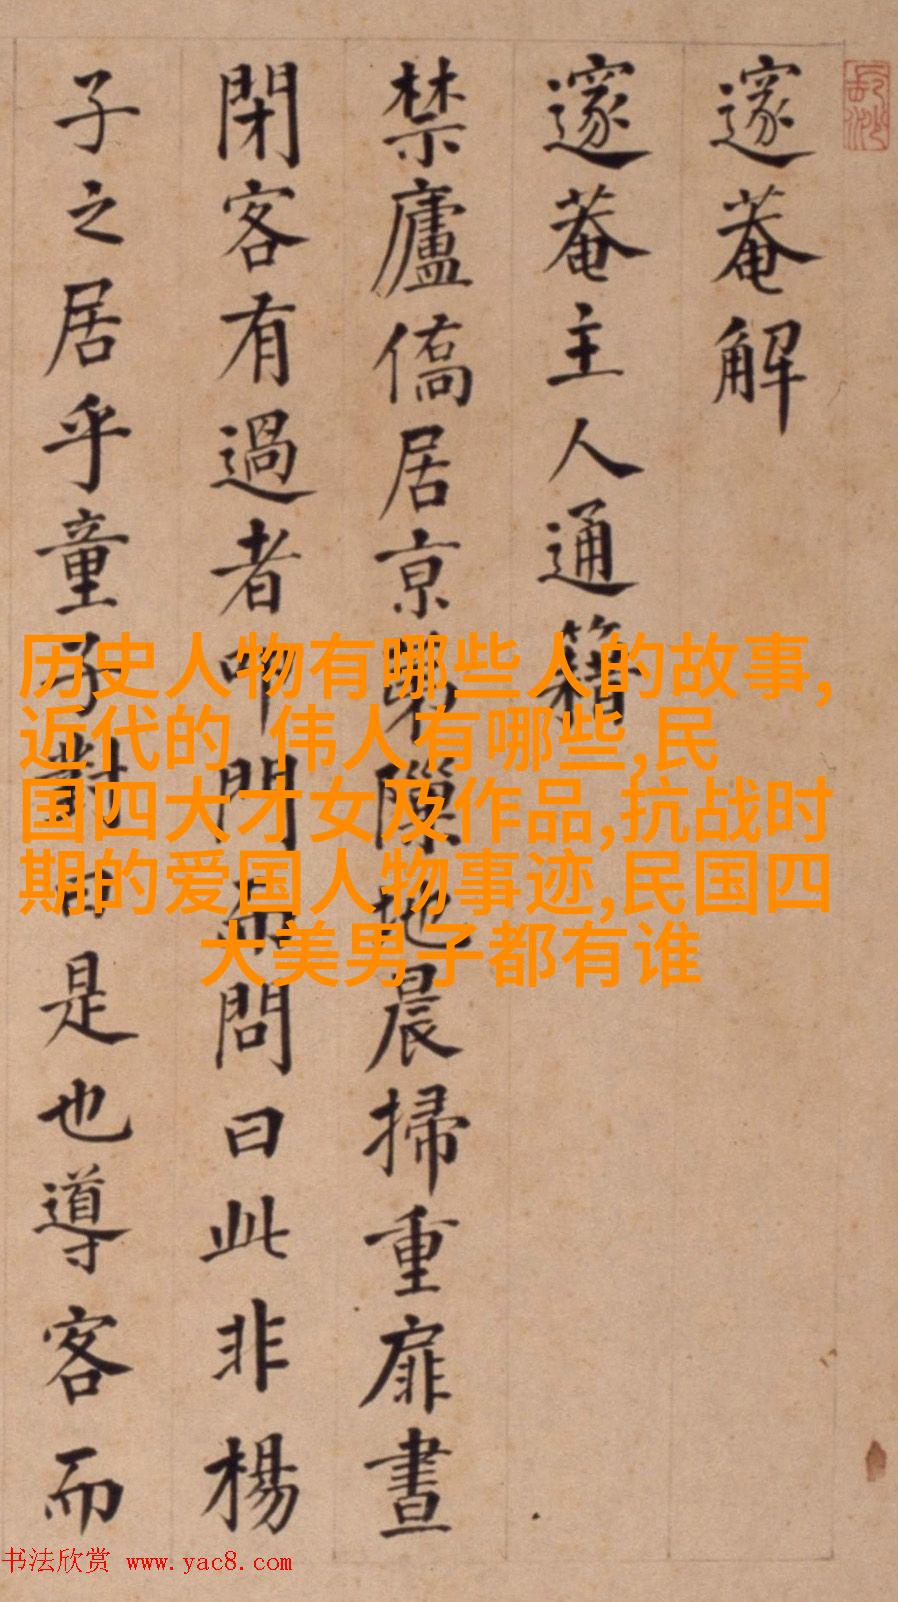 邃菴解
邃菴主人通籍
禁廬僑居京第隙地晨掃重扉晝
閉客有過者叩門而問曰此非楊
子之居乎童子對曰是也導客而
历史人物有哪些人的故事,
近代的 伟人有哪些,民
国四大才女及作品,抗战时
期的爱国人物事迹,民国四
大美男子都有谁
书法欣赏 www.yac8.com